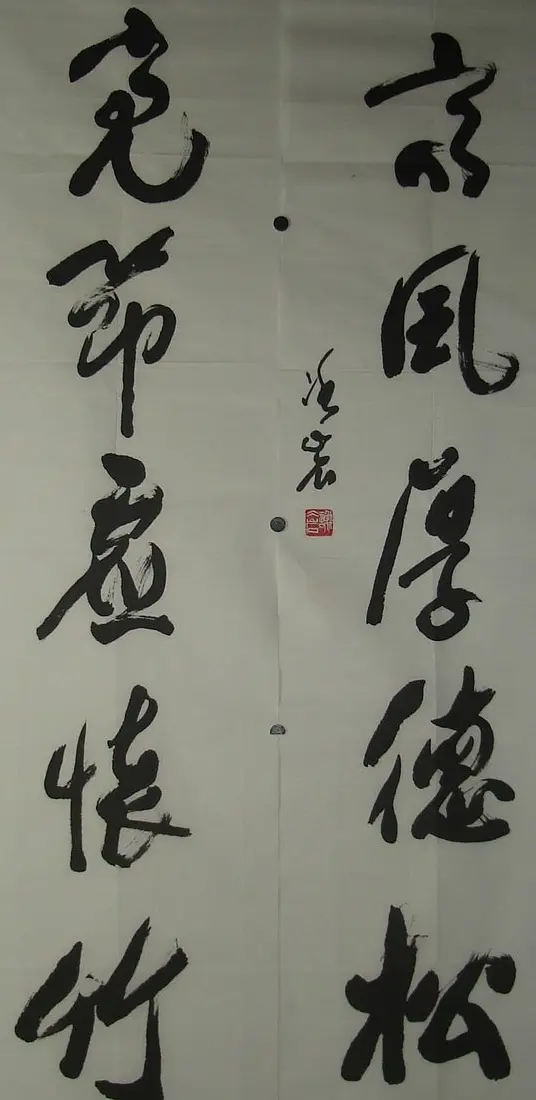 高風厚德松
亮節虚懷竹